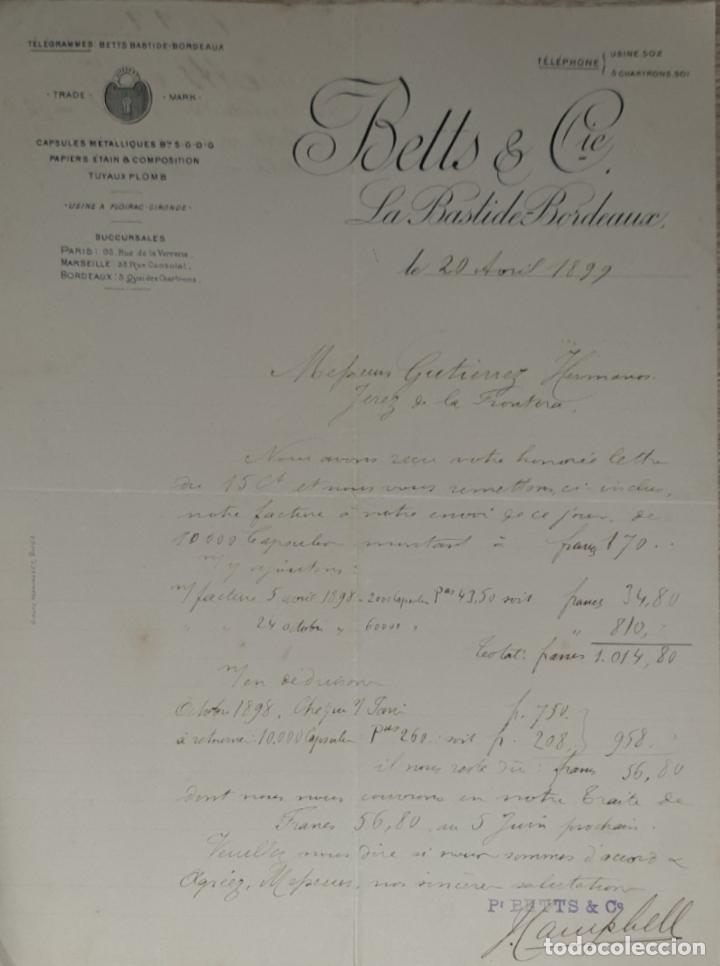 TÉLÉGRAMMES: BETTS BASTIDE-BORDEAUX
TÉLÉPHONE { USINE. 502
5 CHARTRONS. 501
TRADE MARK
CAPSULES MÉTALLIQUES Btés S.G.D.G
PAPIERS ÉTAIN & COMPOSITION
TUYAUX PLOMB
USINE A FLOIRAC-GIRONDE
SUCCURSALES
PARIS: Rue de la Verrerie
MARSEILLE: 38 Rue Consolat.
BORDEAUX: 5 Quai des Chartrons.
Betts & Cie.
La Bastide-Bordeaux,
le 20 Avril 1899
Messieurs Gutierrez Hermanos.
Jerez de la Frontera.
Nous avons reçu votre honorée lettre
du 15 Ct et nous vous remettons, ci inclus,
notre facture à notre envoi de ce jour, de
10000 Capsules montant à francs 170.
n/y ajoutons:
n/ facture 5 avril 1898 2000 Capsules pas 43,50 soit francs 34,80
" " 24 octobre " 60000 " " 810,-
Total: francs 1.014,80
n/ en déduisons
Octobre 1898, Chèque s/ Paris fr. 750.
à retourner: 10.000 Capsules pas 260. soit fr. 208. } 958.
il nous reste dû: francs 56,80
dont nous nous couvrons en notre traite de
Francs 56,80 au 5 Juin prochain.
Veuillez nous dire si nous sommes d'accord &
Agréez, Messieurs, nos sincères salutations
Pr BETTS & Co
J. Campbell
todocoleccion